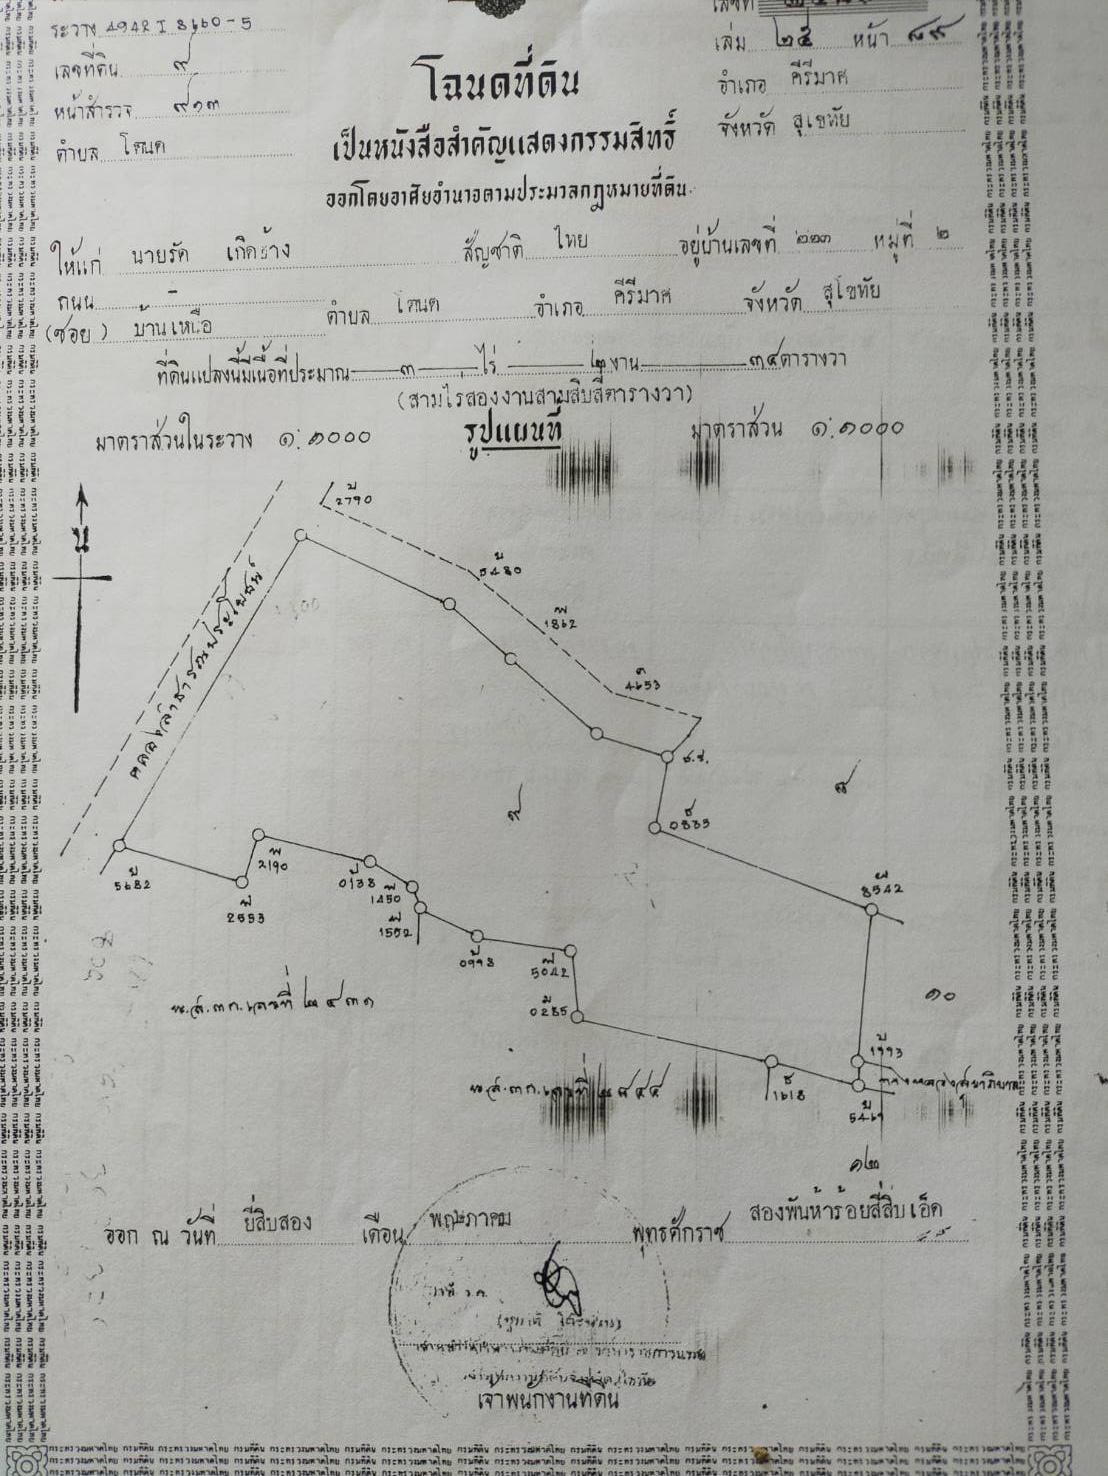 ระวาง 4942 I 8660-5
เลขที่
เลขที่ดิน ๙
เล่ม ๒๕ หน้า ๘๙
หน้าสำรวจ ๙๑๓
โฉนดที่ดิน
อำเภอ คีรีมาศ
ตำบล โตนด
เป็นหนังสือสำคัญแสดงกรรมสิทธิ์
จังหวัด สุโขทัย
ออกโดยอาศัยอำนาจตามประมวลกฎหมายที่ดิน
ให้แก่ นายรัด เกิดช้าง สัญชาติ ไทย อยู่บ้านเลขที่ ๒๑๓ หมู่ที่ ๒
ถนน - ตำบล โตนด อำเภอ คีรีมาศ จังหวัด สุโขทัย
(ซอย) บ้านเหนือ
ที่ดินแปลงนี้มีเนื้อที่ประมาณ ๓ ไร่ ๒ งาน ๓๔ ตารางวา
(สามไร่สองงานสามสิบสี่ตารางวา)
มาตราส่วนในระวาง ๑:๑๐๐๐ รูปแผนที่ มาตราส่วน ๑:๑๐๐๐
น
2790
5480
คลองสาธารณประโยชน์
1862
4653
๙
๘
5682
2190
2553
0138
1450
1552
8542
5042
0285
น.ส.๓ก.เลขที่ ๒๔๓๑
๑๐
น.ส.๓ก.เลขที่
1618
5461
๑๒
ออก ณ วันที่ ยี่สิบสอง เดือน พฤษภาคม พุทธศักราช สองพันห้าร้อยสี่สิบเอ็ด
เจ้าพนักงานที่ดิน